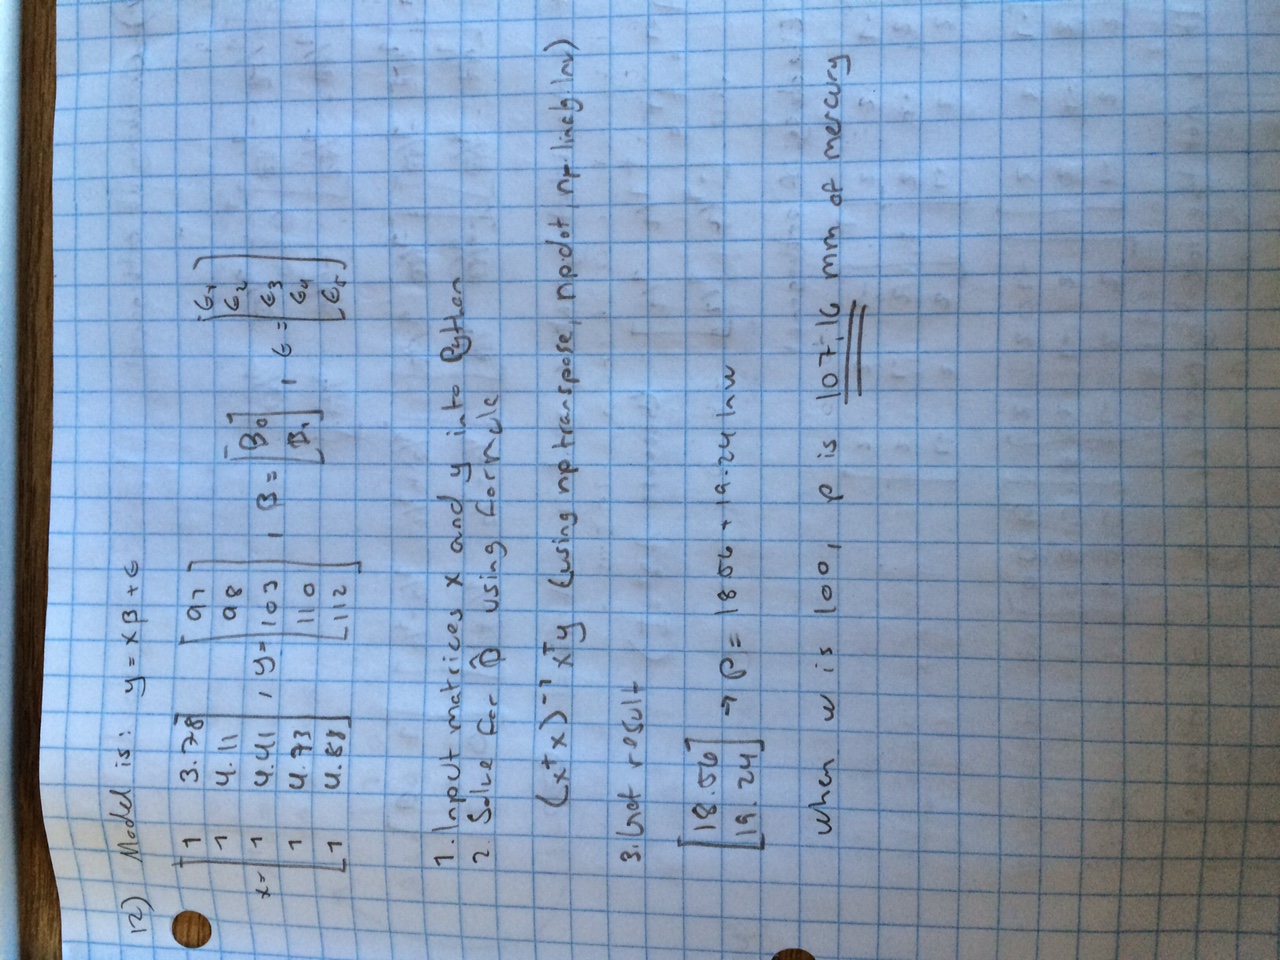 12) Model is: y = xβ + ϵ
x = [1 3.78; 1 4.11; 1 4.41; 1 4.73; 1 4.88], y = [97; 98; 103; 110; 112], β = [B₀; B₁], ϵ = [ϵ₁; ϵ₂; ϵ₃; ϵ₄; ϵ₅]
1. Input matrices x and y into Python
2. Solve for β̂ using formula
(xᵀx)⁻¹ xᵀy (using np.transpose, np.dot, np.linalg.inv)
3. Get result
[18.56; 19.24] → p = 18.56 + 19.24 ln w
When w is 100, p is 107,16 mm of mercury